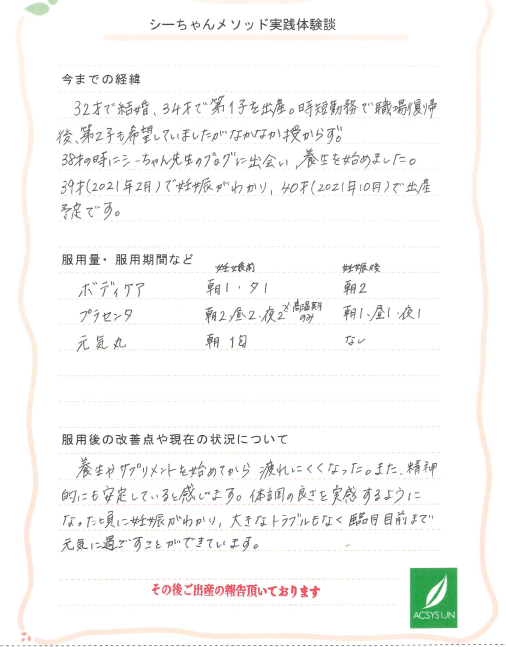 シーちゃんメソッド実践体験談
今までの経緯
32才で結婚、34才で第1子を出産。時短勤務で職場復帰
後、第2子も希望していましたがなかなか授からず。
38才の時にシーちゃん先生のブログに出会い、養生を始めました。
39才(2021年2月)で妊娠がわかり、40才(2021年10月)で出産
予定です。
服用量・服用期間など
妊娠前 妊娠後
ボディケア 朝1・夕1 朝2
プラセンタ 朝2、昼2、夜2 ※高温期のみ 朝1、昼1、夜1
元気丸 朝1包 なし
服用後の改善点や現在の状況について
養生やサプリメントを始めてから疲れにくくなった。また、精神
的にも安定していると感じます。体調の良さを実感するように
なった頃に妊娠がわかり、大きなトラブルもなく臨月目前まで
元気に過ごすことができています。
その後ご出産の報告頂いております
ACSYS UN